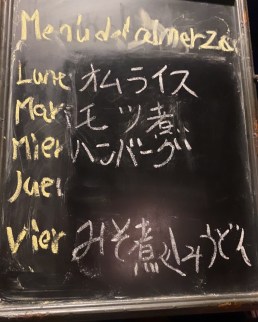 Menú del almerzo
Lune オムライス
Mar モツ煮
Mier ハンバーグ
Juev
Vier みそ煮込みうどん